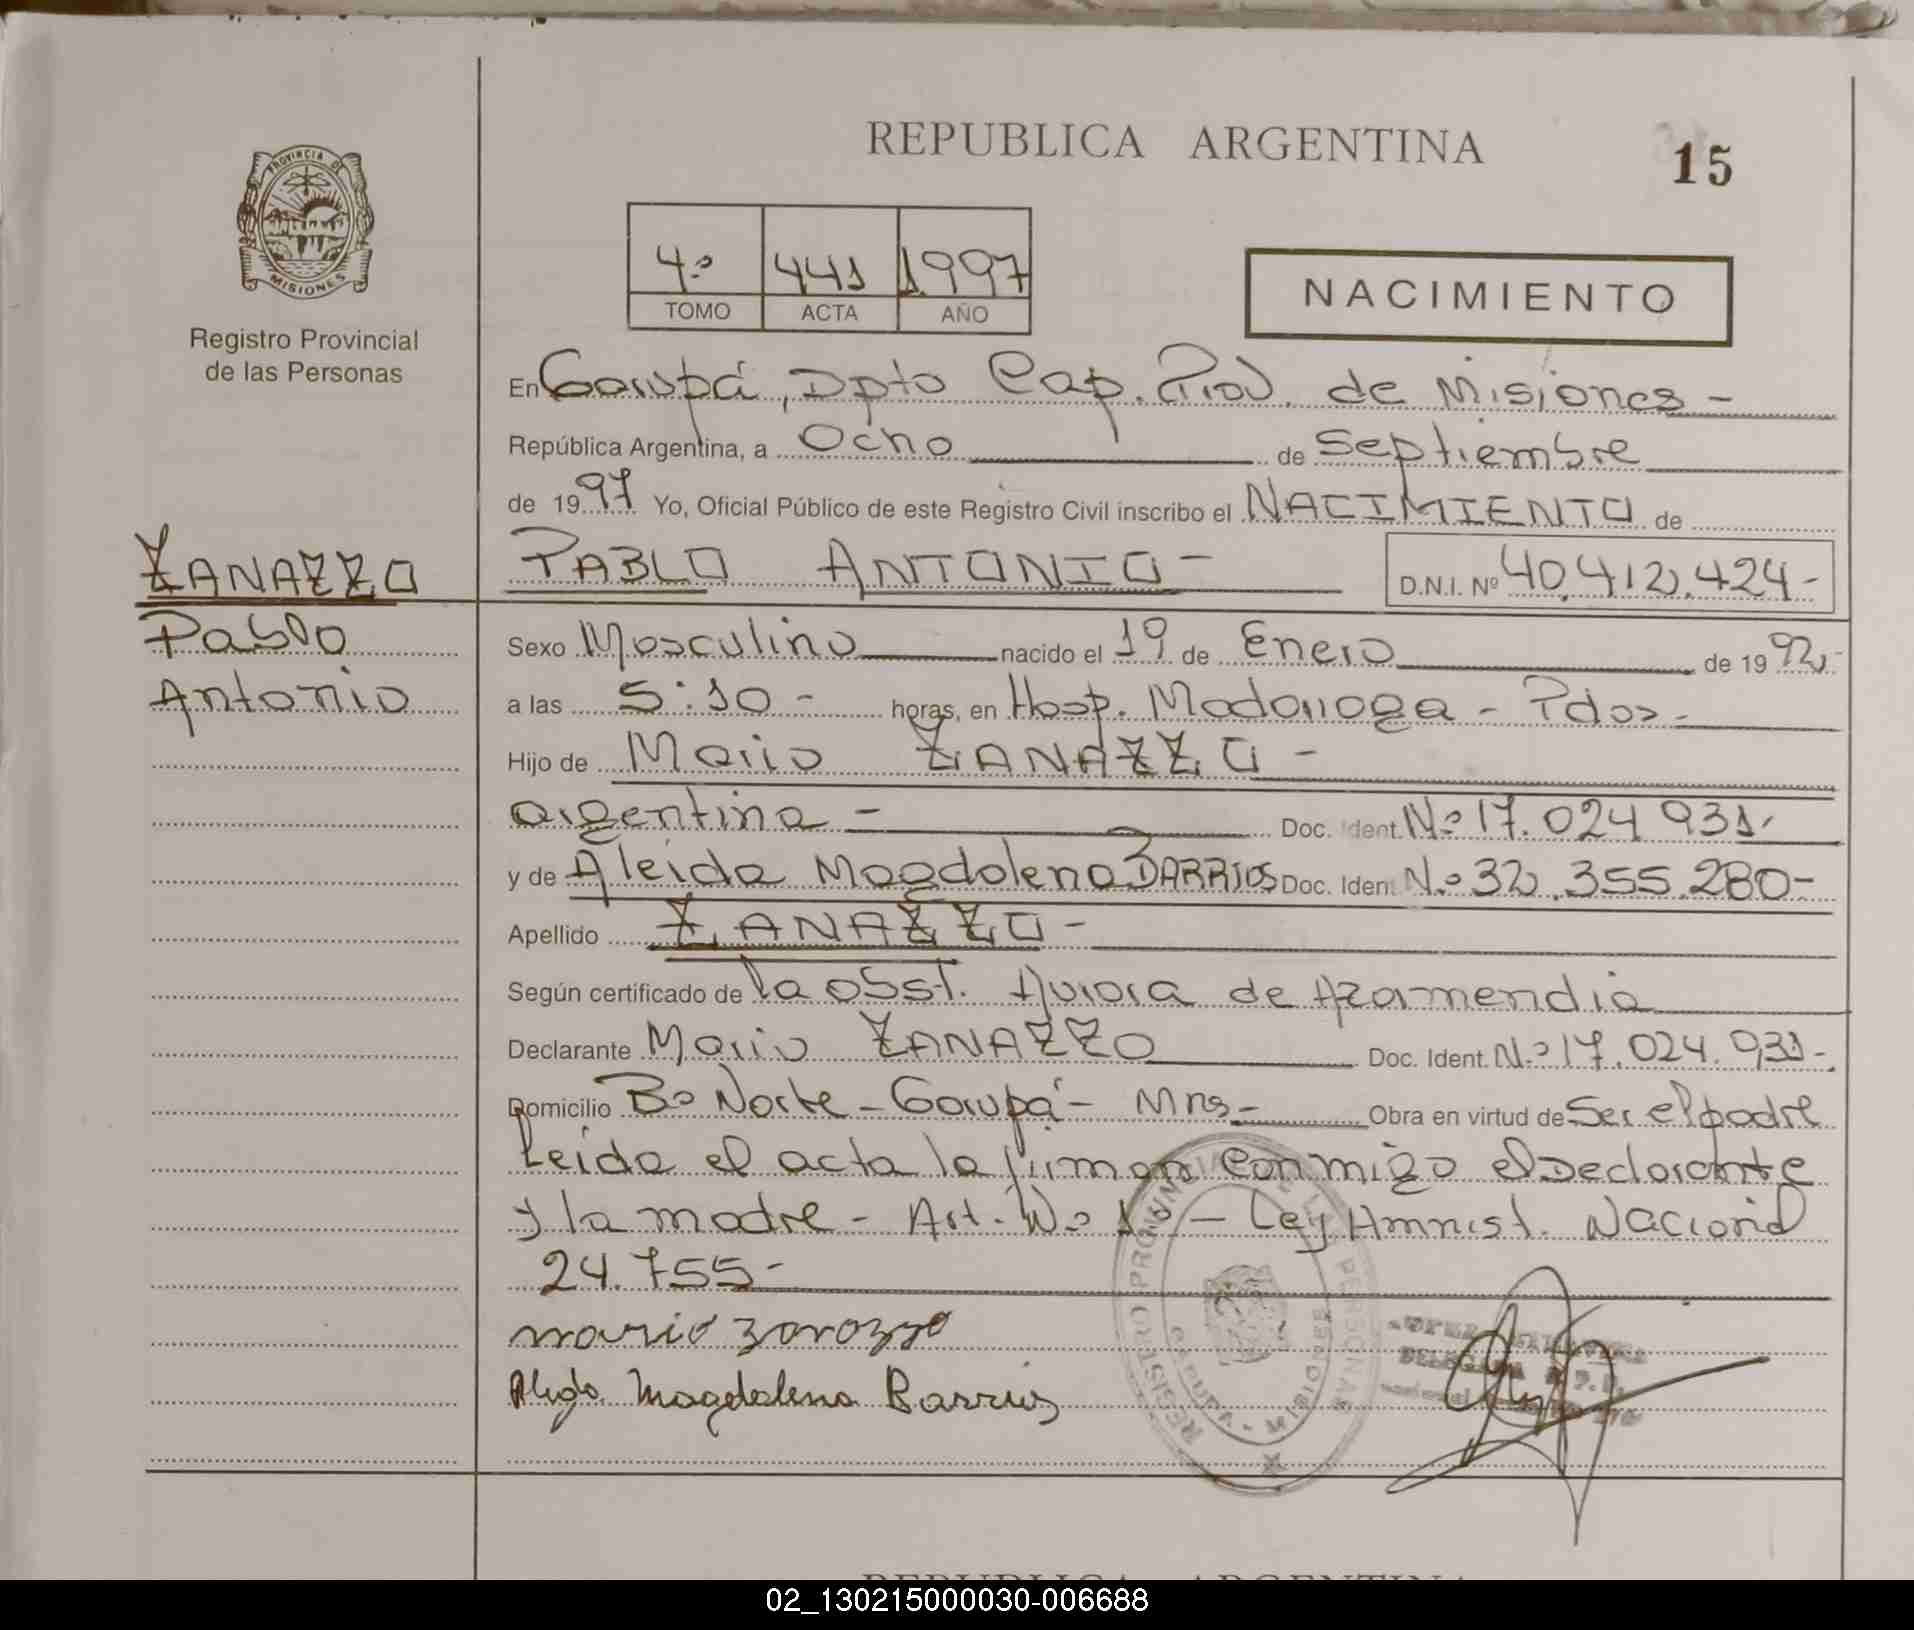 REPUBLICA ARGENTINA
15
PROVINCIA DE
MISIONES
Registro Provincial
de las Personas
4º 441 1997
TOMO ACTA AÑO
NACIMIENTO
En Garupá, Dpto Cap. Prov. de Misiones -
República Argentina, a Ocho de Septiembre
de 1997 Yo, Oficial Público de este Registro Civil inscribo el NACIMIENTO de
ZANAZZO
Pablo
Antonio
PABLO ANTONIO - D.N.I. Nº 40.412.424-
Sexo Masculino nacido el 19 de Enero de 1992-
a las 5:10 - horas, en Hosp. Madariaga - Pdas -
Hijo de Mario ZANAZZO -
argentina - Doc. Ident. Nº 17.024 931-
y de Aleida Magdalena BARRIOS Doc. Ident. Nº 32.355.280-
Apellido ZANAZZO -
Según certificado de la obst. Aurora de Azamendia
Declarante Mario ZANAZZO Doc. Ident. Nº 17.024.931-
Domicilio Bº Norte - Garupá - Mns - Obra en virtud de Ser el padre
Leida el acta la firman conmigo el Declarante
y la madre - Art. Nº 1º - Ley Amnist. Nacional
24.755-
mario zanazzo
Magdalena Barrios
REGISTRO PROVINCIAL DE LAS PERSONAS
GARUPA - MISIONES
DELEGADA
REPUBLICA ARGENTINA
02_130215000030-006688